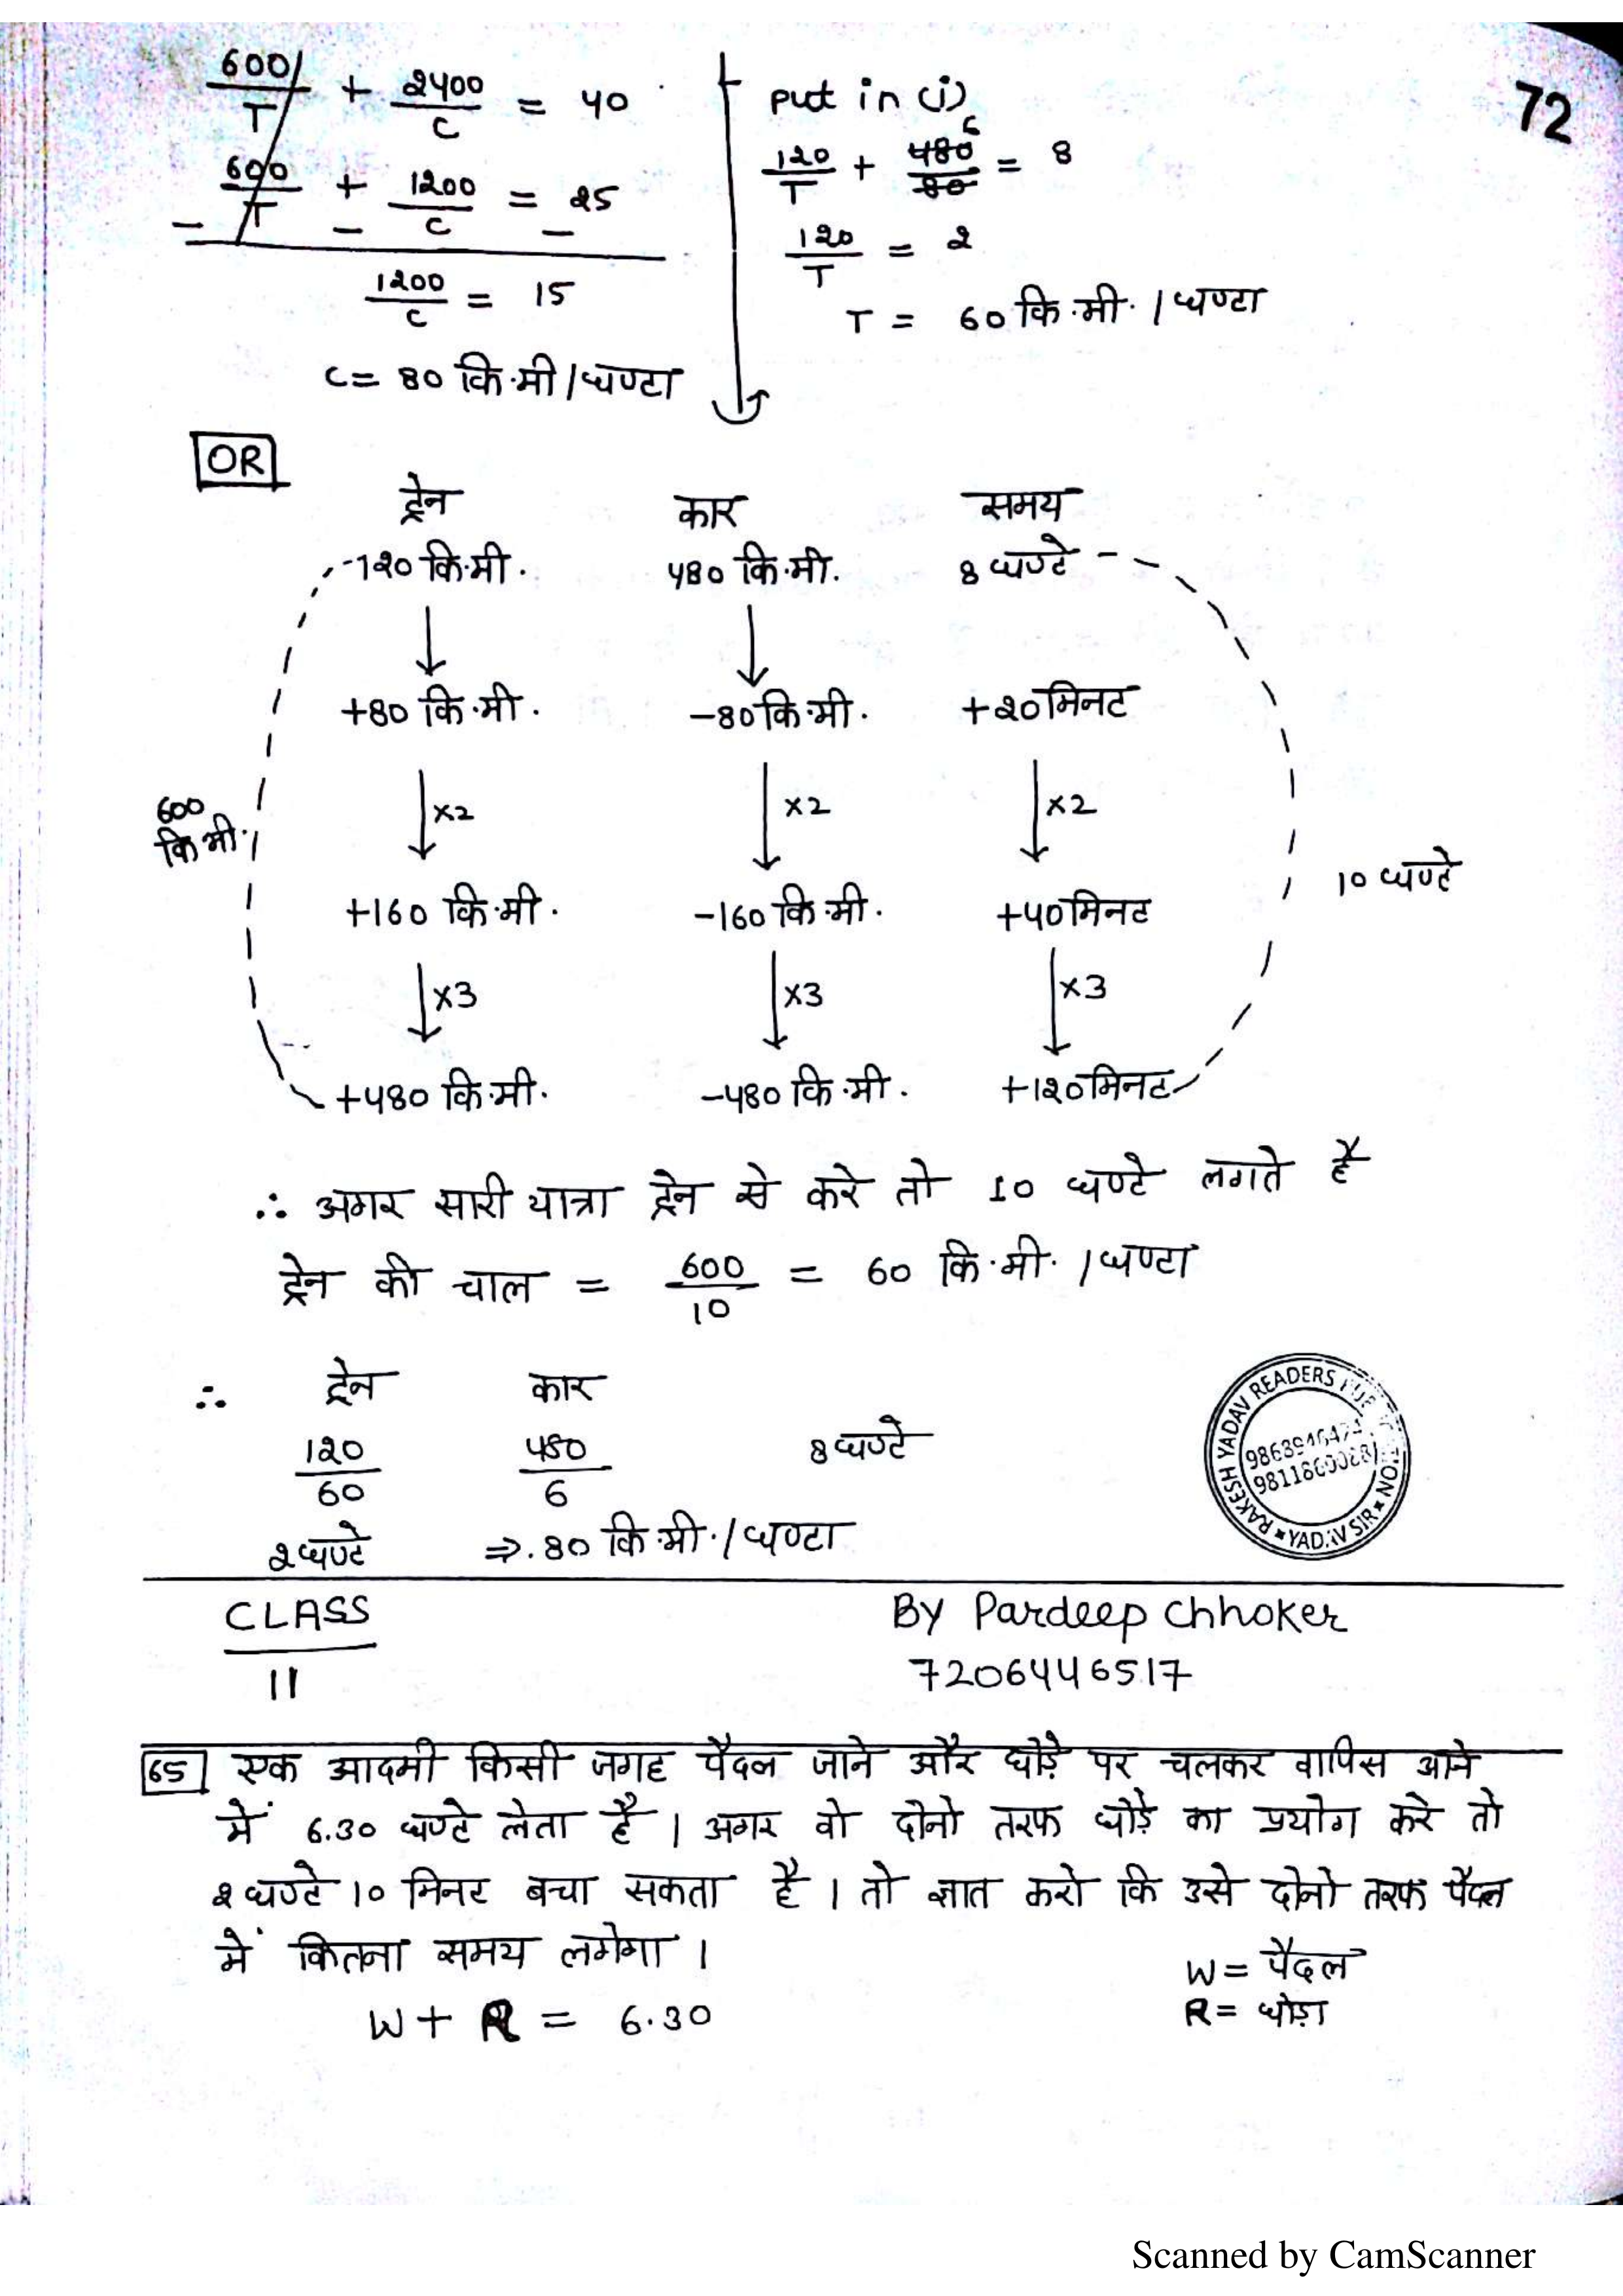 72
600/T + 2400/C = 40
600/T + 1200/C = 25
− − −
1200/C = 15
C = 80 कि.मी/घण्टा
put in (i)
120/T + 480/80 = 8
6
120/T = 2
T = 60 कि.मी. / घण्टा
OR
ट्रेन कार समय
120 कि.मी. 480 कि.मी. 8 घण्टे
+80 कि.मी. -80 कि.मी. +20 मिनट
x2 x2 x2
600
कि.मी.
10 घण्टे
+160 कि.मी. -160 कि.मी. +40 मिनट
x3 x3 x3
+480 कि.मी. -480 कि.मी. +120 मिनट
∴ अगर सारी यात्रा ट्रेन से करे तो 10 घण्टे लगते है
ट्रेन की चाल = 600/10 = 60 कि.मी. / घण्टा
∴ ट्रेन कार
120/60 480/6 8 घण्टे
2 घण्टे ⇒ 80 कि.मी. / घण्टा
RAKESH YADAV READERS
YADAV SIR
CLASS
11
By Pardeep Chhoker
7206446517
65 एक आदमी किसी जगह पैदल जाने और घोड़े पर चलकर वापिस आने
में 6.30 घण्टे लेता है । अगर वो दोनो तरफ घोड़े का प्रयोग करे तो
2 घण्टे 10 मिनट बचा सकता है । तो ज्ञात करो कि उसे दोनो तरफ पैदल
में कितना समय लगेगा ।
W = पैदल
R = घोड़ा
W + R = 6.30
Scanned by CamScanner